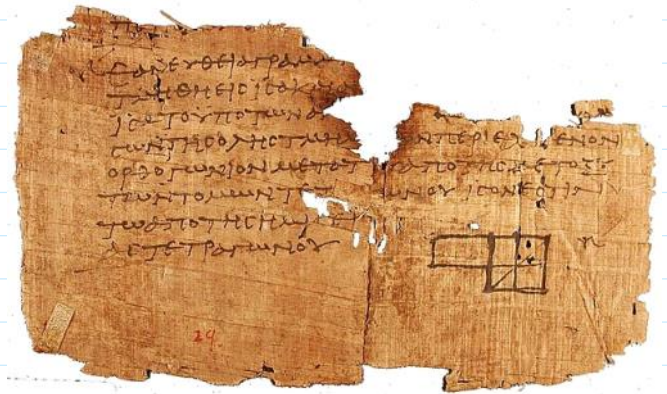 ΕΑΝ ΕΥΘΕΙΑ ΓΡΑΜΜ
ΤΜΗΘΗ ΕΙϹ ΙϹΑ Κ
ΙϹΑ ΤΟ ΥΠΟ ΤΩΝ Α
ϹΩΝ ΤΗϹ ΟΛΗϹ ΤΜΗ Ν ΠΕΡΙΕΧΟΜΕΝΟΝ
ΟΡΘΟΓΩΝΙΟΝ ΜΕΤΑ Τ ΑΠΟ ΤΗϹ ΜΕΤΟΞΥ
ΤΩΝ ΤΟΜΩΝ ΤΕΤ ΩΝΟΥ ΙϹΟΝ ΕϹΤΙΝ
ΤΩ ΑΠΟ ΤΗϹ ΗΜΙϹΕΙ
ΑϹ ΤΕΤΡΑΓΩΝΟΥ
29.